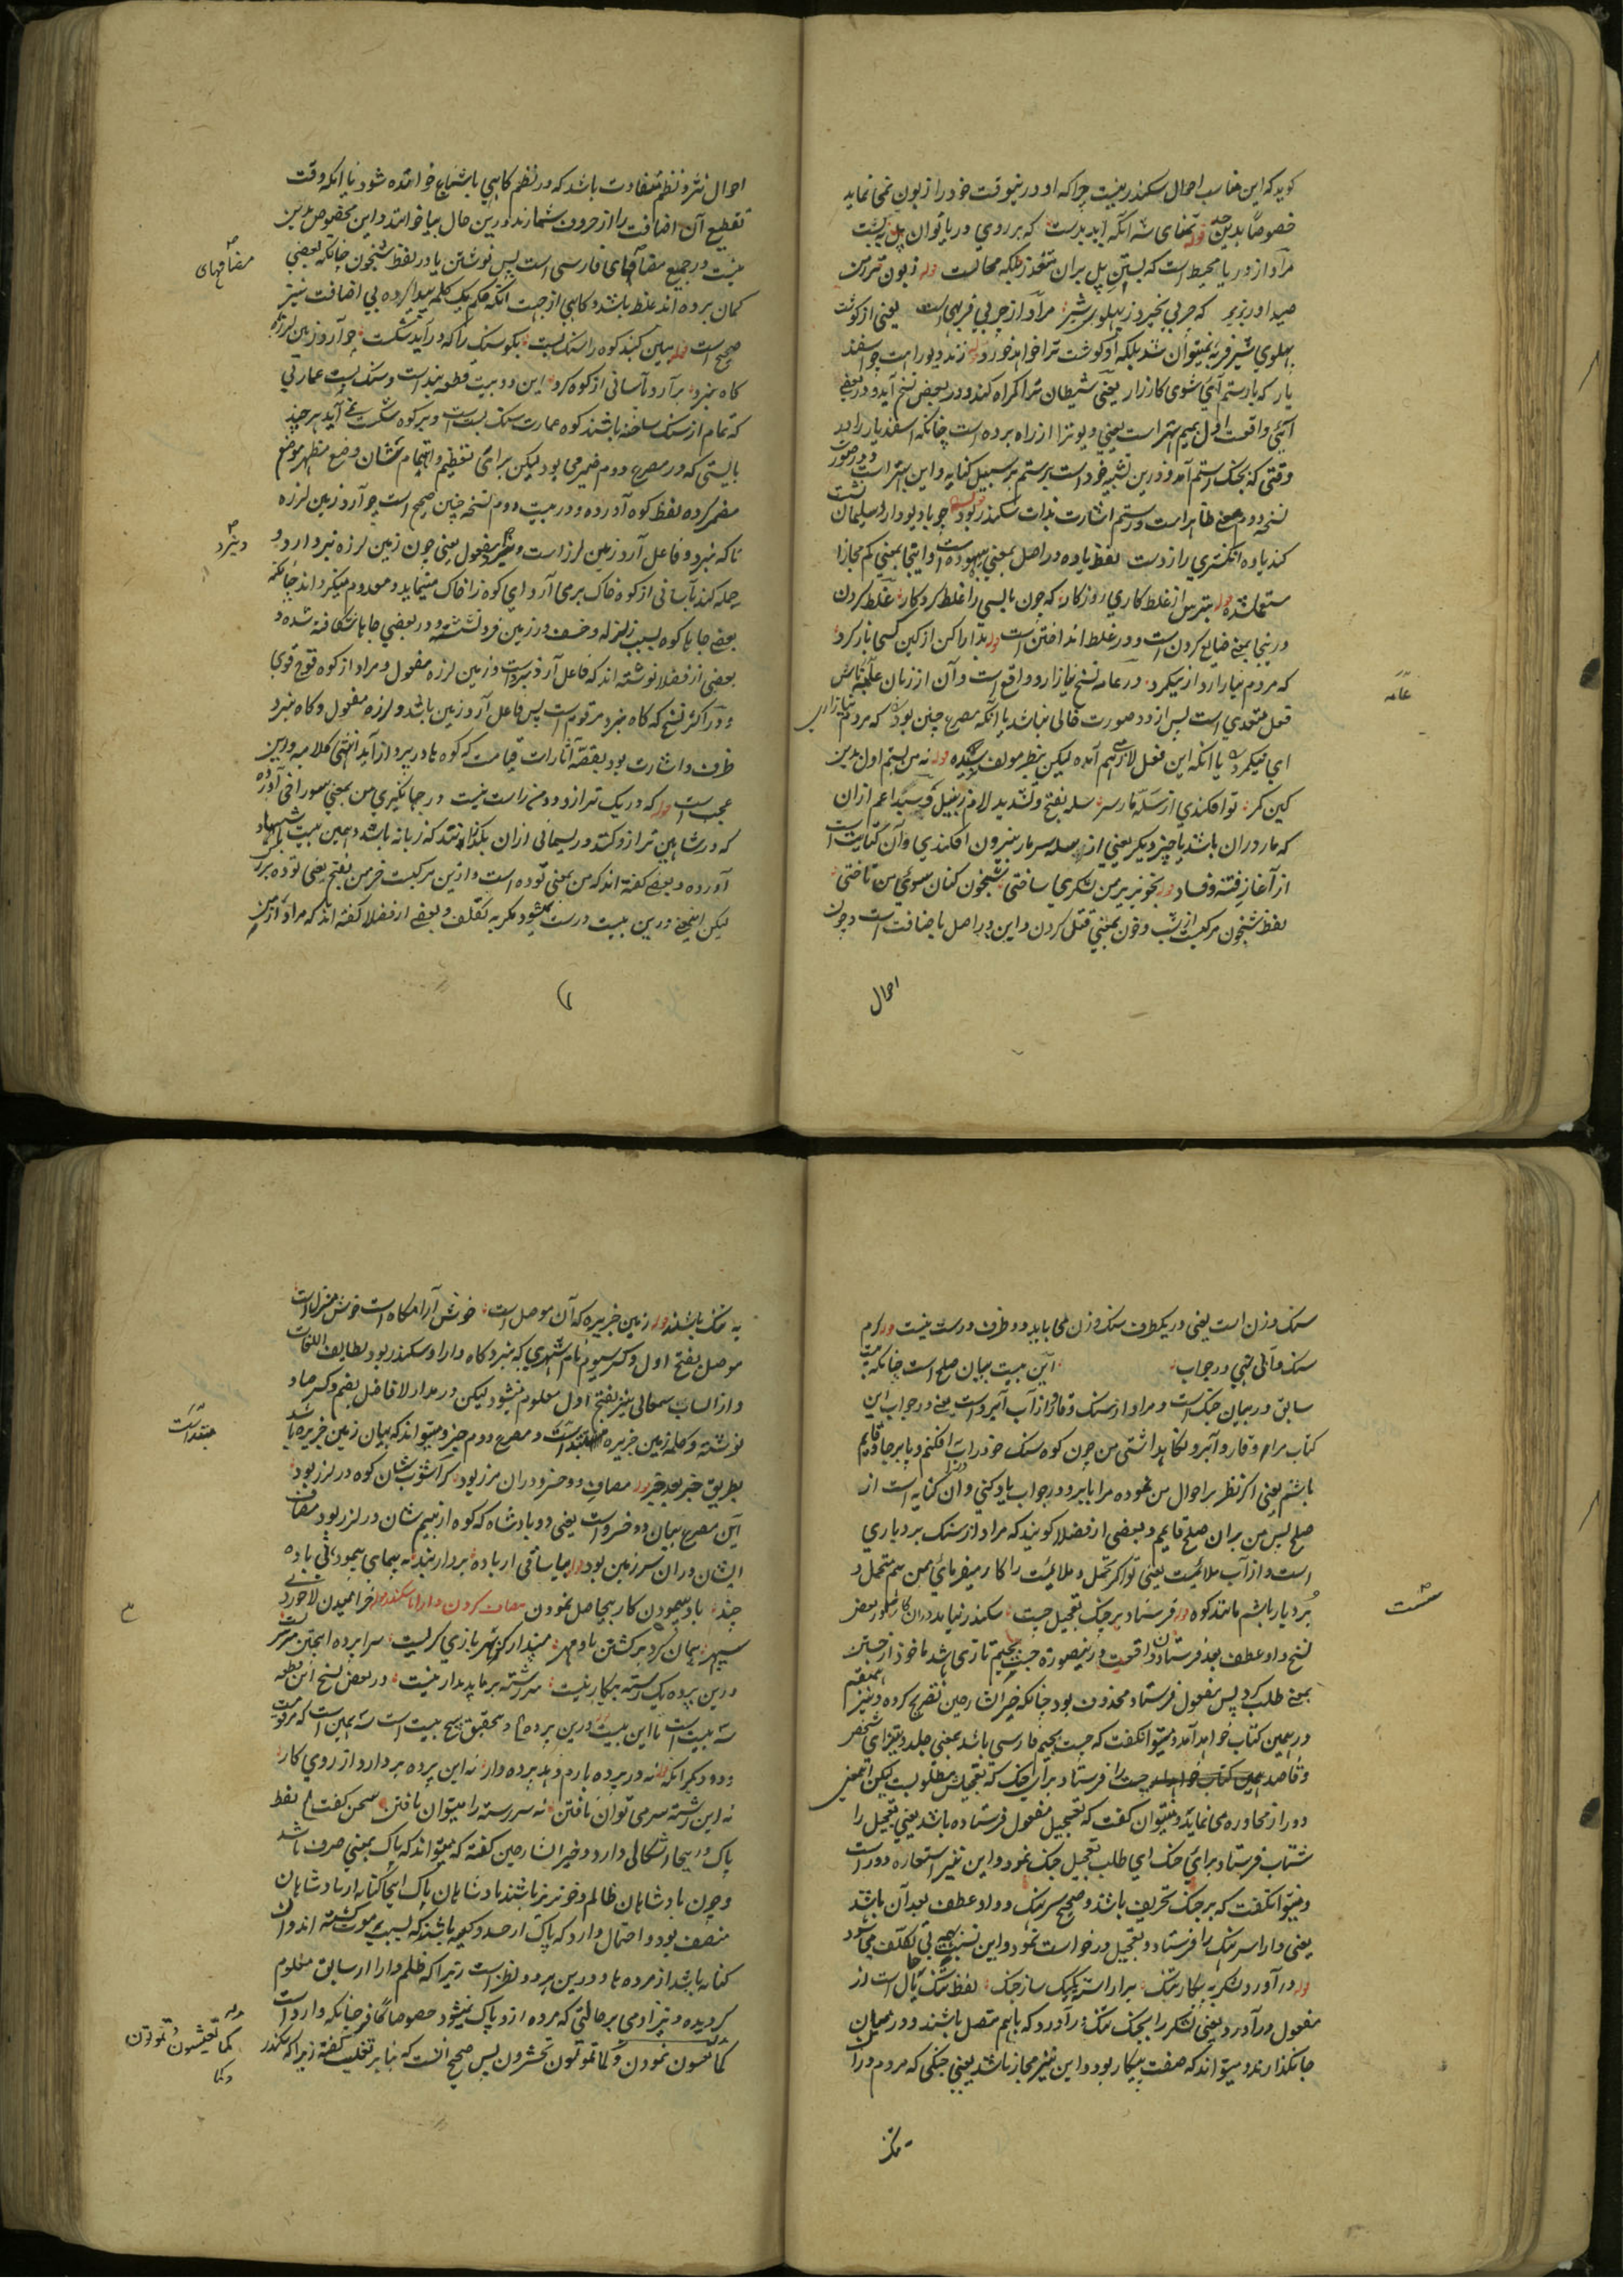 گوید که این مناسب احوال سکندر نیست چرا که او درینوقت خود را زبون نمی نماید
خصوصاً بدین حد قوله تمنای شه آنکه آید بدست که بر روی دریا توان پل نه بست
مراد از دریا محیط است که بستن پل بران متعذر بلکه محالست قوله زبون تر ز من
صید آور بزیر که چربی نخیزد ز پهلوی شیر مراد از چربی فربهی است یعنی از گوشت
پهلوی شیر فربه نمیتوان شد بلکه او گوشت ترا خواهد خورد قوله زند دیو راهت چو اسفند
یار که با رستم آئی سوی کارزار یعنی شیطان ترا گمراه کند و در بعض نسخ آید و در بعضی
آئی واقعست اول بمیم بهتر است یعنی دیو ترا از راه برده است چنانکه اسفندیار را در
وقتی که بجنگ رستم آمد و درین تشبیه خود است برستم بر سبیل کنایه و این بهتر است و در صورت
نسخه دوم معنی ظاهر است و رستم اشارت بذات سکندر بود قوله چو با دیو دارد سلیمان نشست
کند یاوه انگشتری را ز دست لفظ یاوه در اصل بمعنی بیهوده است و اینجا بمعنی گم مجازا
مستعمل شده قوله بترس از غلط کاری روزگار که چون ما بسی را غلط کرد کار غلط کردن
درینجا بمعنی ضایع کردن است و در غلط انداختن است قوله مدارا کن از کین کسی باز کرد
که مردم نیازارد از نیکمرد در عامه نسخ نیازارد واقع است و آن از زبان
فعل متعدی است پس از دو صورت خالی نباشد یا آنکه مصرع چنین بود که مردم نیازاری
ای نیکمرد یا آنکه این فعل لازم هم آمده لیکن بنظر مولف نرسیده قوله نه من بستم اول بدین
کین کمر تو افکندی از سله مار سر سله بفتح و تشدید لام زنبیل و سبد اعم ازان
که مار دران باشد یا چیز دیگر یعنی از سله سر مار بیرون افکندی و آن کنایت است
از آغاز فتنه و فساد قوله بخونریز من لشکری ساختی شبخون کنان سوی من تاختی
لفظ شبخون مرکبست از شب و خون بمعنی قتل کردن و این در اصل باضافت است و چون
احوال
عامه
احوال نثر و نظم متفاوت باشد که در نظم گاهی باشباع خوانده شود یا آنکه وقت
تقطیع آن اضافت را از حروف شمارند درین حال بیا خوانند و این مخصوص بدین
نیست در جمیع مضافهای فارسی است پس نوشتن یا در لفظ شبخون چنانکه بعضی
گمان برده اند غلط باشد و گاهی از جهت آنکه حکم یک کلمه پیدا کرده بی اضافت نیز
صحیح است قوله ببین گنبد کوه را سنگ بست بگو سنگ را که در آید شکست چو آرد زمین لرزه
کاه نبرد برآرد بآسانی از کوه گرد این دو بیت قطعه بند است و سنگ بست عمارتی
که تمام از سنگ ساخته باشند کوه عمارت سنگ بست است و بر کوه شکست نمی آید هر چند
بایستی که در مصرع دوم ضمیر می بود لیکن برای تعظیم و اهتمام شان وضع مظهر موضع
مضمر کرده لفظ کوه آورده و در بیت دوم نسخه چنین صحیح است چو آرد زمین لرزه
ناگه نبرد و فاعل آرد زمین لرز است و نبرد مفعول یعنی چون زمین لرزه نبرد آرد و
حمله کند بآسانی از کوه خاک برمی آرد ای کوه را خاک مینماید و معدوم میگرداند چنانکه
بعضی جاها کوه بسبب زلزله و خسف در زمین فرو نشسته و در بعضی جاها شگافته شده و
بعضی از فضلا نوشته اند که فاعل آرد نبرد است و زمین لرزه مفعول و مراد از کوه فوج قوی
و در اکثر نسخ که کاه نبرد مرقوم است پس فاعل آرد زمین باشد و لرزه مفعول و کاه نبرد
ظرف و اشارت بود بقصه آثارات قیامت که کوه ها در پرواز آید انتهی کلامه و این
عجب است قوله که در یک ترازو دو من راست نیست در جهانگیری من بمعنی سوراخی آورده
که در شاهین ترازو کنند و ریسمانی ازان بگذرانند که زبانه باشد و همین بیت شاهد
آورده و بعضی گفته اند که من بمعنی توده است و ازین مرکبست خرمن بفتح یعنی توده بزرگ
لیکن اینمعنی درین بیت درست نمیشود مگر به تکلف و بعضی از فضلا گفته اند که مراد از من
مضافهای
و نبرد
سنگ وزن است یعنی در یکطرف سنگ وزن می باید دو طرف درست نیست قوله گرم
سنگ و آبی نهی در جواب این بیت بیان صلح است چنانکه بیت
سابق در بیان جنگ است و مراد از سنگ وقار و از آب آبرو است یعنی در جواب این
کتاب مرا وقار و آبرو نگاه داشتی من چون کوه سنگ خود را به آب افکنم و پابرجا و قایم
باشم یعنی اگر نظر بر احوال من نموده مرا بآبرو در جواب یاد کنی و آن کنایه است از
صلح پس من بران صلح قایمم و بعضی از فضلا گویند که مراد از سنگ بردباری
است و از آب ملایمت یعنی تو اگر تحمل و ملایمت را کار میفرمائی من هم متحمل و
بردبار باشم مانند کوه قوله فرستاد بر جنگ تعجیل جست سکندر نیامد دران کار سست در بعض
نسخ واو عطف بعد فرستادن واقعست درینصورت جست بجیم تازی باشد ماخوذ از جستن
بمعنی طلب کرد پس مفعول فرستاد محذوف بود چنانکه خیر الشارحین تصریح کرده و نیز
در همین کتاب خواهد آمد و میتوان گفت که جست بجیم فارسی باشد بمعنی جلد و تیز ای شخص
و قاصد جست را فرستاد برای جنگ که تعجیلش مطلوبست لیکن اینمعنی
دور از محاوره می نماید و میتوان گفت که تعجیل مفعول فرستاده باشد یعنی تعجیل را
شتاب فرستاد برای جنگ ای طلب تعجیل جنگ نمود و این نیز استعاره دور است
و میتوان گفت که بر جنگ تحریف باشد و صحیح سرهنگ و واو عطف بعد آن باشد
یعنی دارا سرهنگ را فرستاد و تعجیل درخواست نمود و این نسبت بهمه بی تکلف میشود
قوله درآورد لشکر به پیکار تنگ برآراسته یکیک ساز جنگ لفظ تنگ حال است از
مفعول درآورد یعنی لشکر را بجنگ تنگ درآورد که باهم متصل باشند و در میان
جا نگذارند و میتواند که صفت پیکار بود و این نیز مجاز باشد یعنی جنگی که مردم دران
تنگ
سست
به تنگ باشند قوله زمین جزیره که آن موصل است خوش آرامگاه است خوش منزل است
موصل بفتح اول و کسر سیوم نام شهری که نبرد گاه دارا و سکندر بود لطایف اللغات
و از انساب سمعانی نیز بفتح اول معلوم میشود لیکن در مدار الافاضل بضم و کسر صاد
نوشته و کلمه زمین جزیره مبتداست و مصرع دوم خبر و میتواند که بیان زمین جزیره باشد
بطریق خبر بعد خبر قوله مصاف دو خسرو دران مرز بود کز آشوب شان کوه در لرز بود
این مصرع بیان دو خسرو است یعنی دو پادشاه که کوه از بیم شان در لرز بود مصاف
ایشان دران سرزمین بود قوله بیا ساقی از باده بردار بند به پیمای پیمودنی باده
چند باد پیمودن کار بیحاصل نمودن مصاف کردن دارا با سکندر قوله خرامیدن لاجورد
سپهر همان گرد بر گشتن ماه و مهر مپندار کز بهر بازی گریست سرا پرده اینچنین سرسریست
درین پرده یک رشته بیکار نیست سررشته بر ما پدیدار نیست در بعض نسخ این قطعه
سه بیت است تا این بیت درین پرده و تحقیق پنج بیت است سه همین است که مرقومست
و دو دیگر آنکه نه در پرده بارم دهد پرده دار نه این پرده بردارد از روی کار
نه این رشته سر می توان تافتن نه سررشته را میتوان یافتن
پاک دریجا اشکالی دارد و خیر الشارحین گفته که میتواند که پاک بمعنی صرف باشد
و چون پادشاهان ظالم و خونریز باشند پادشاهان پاک اینجا کنایه از پادشاهان
منصف بود و احتمال دارد که پاک از حسد و کینه باشد که بسبب موت گشته اند و آن
کنایه باشد از مرده ها و درین هر دو نظر است زیرا که ظلم دارا از سابق معلوم
گردیده و نیز آدمی بر حالتی که مرده ازو پاک نمیشود خصوصا کافر چنانکه وارد است
کما تعیشون تموتون و کما تموتون تحشرون پس صحیح آنست که بنابر تغلیب گفته زیرا که سکندر
مبتداست
کما تعیشون تموتون
و کما